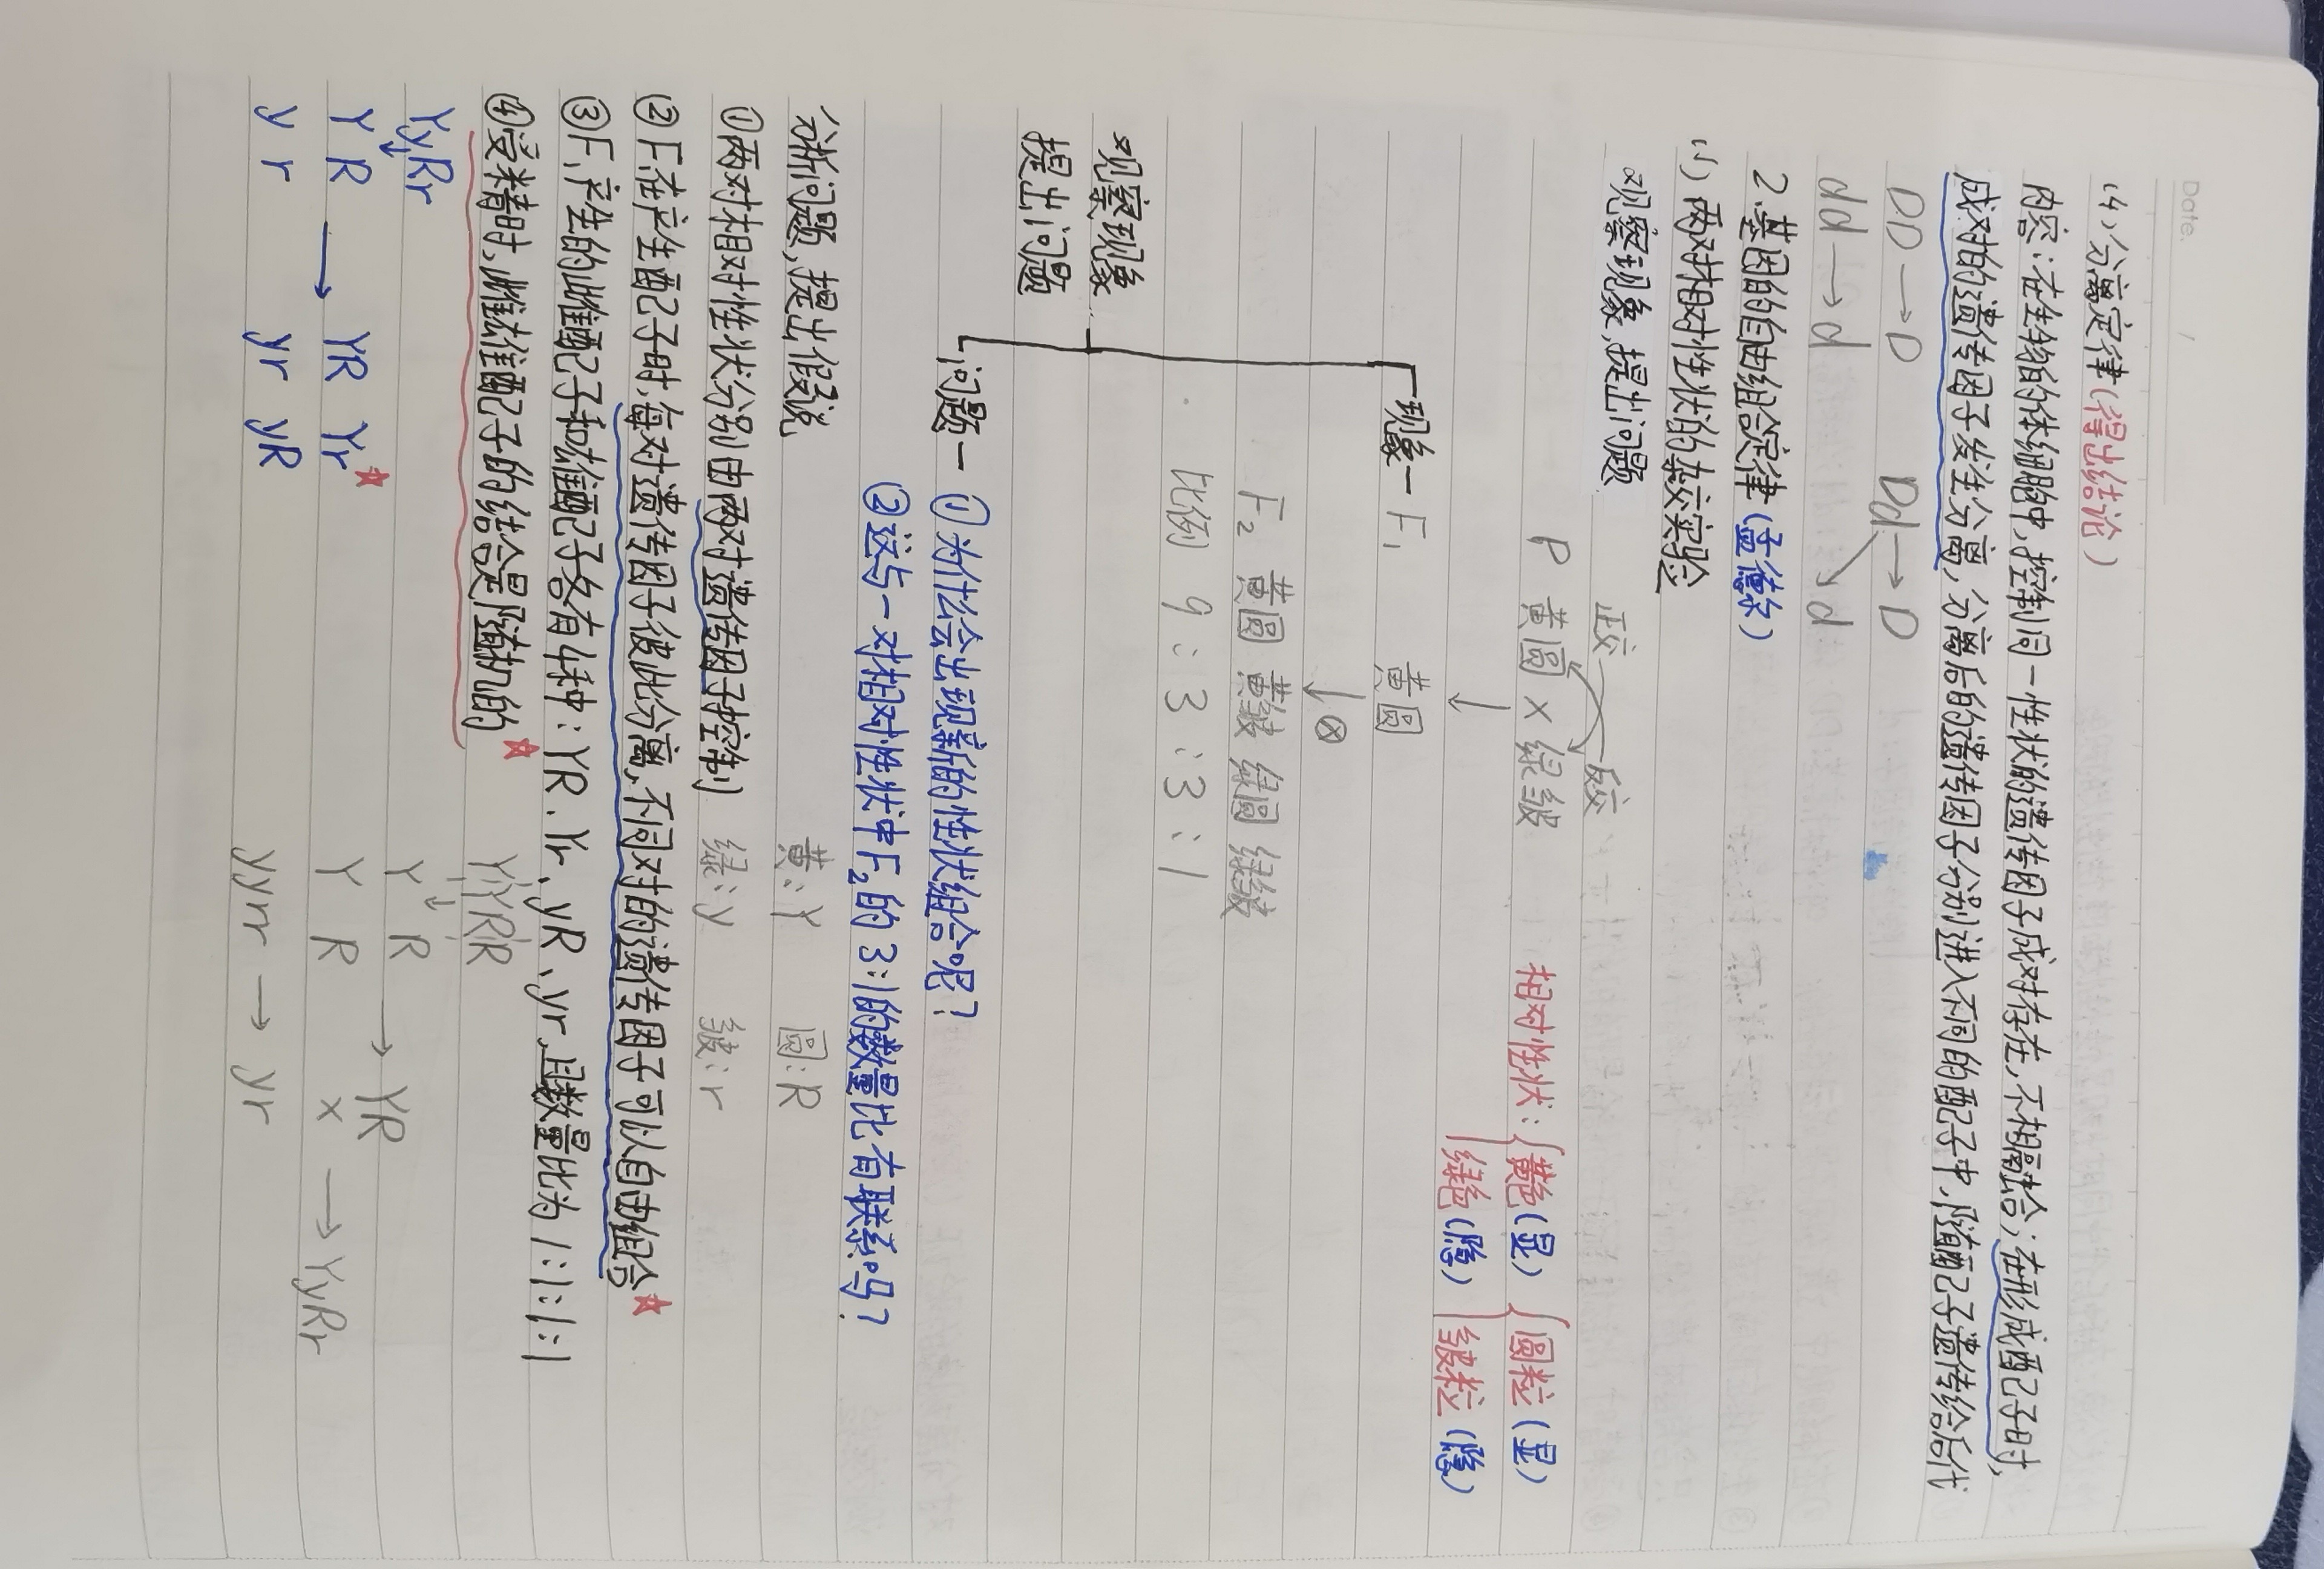 Date. /
(4) 分离定律(得出结论)
内容:在生物的体细胞中,控制同一性状的遗传因子成对存在,不相融合;在形成配子时,
成对的遗传因子发生分离,分离后的遗传因子分别进入不同的配子中,随配子遗传给后代
DD→D Dd→D
dd→d d
2.基因的自由组合定律(孟德尔)
(1)两对相对性状的杂交实验
观察现象,提出问题 正交 反交
P 黄圆 × 绿皱 相对性状:{黄色(显) {圆粒(显)
↓ 绿色(隐) 皱粒(隐)
现象一 F₁ 黄圆
↓⊗
F₂ 黄圆 黄皱 绿圆 绿皱
比例 9:3:3:1
观察现象
提出问题
问题一 ①为什么会出现新的性状组合呢?
②这与一对相对性状中F₂的3:1的数量比有联系吗?
分析问题,提出假说 黄:Y 圆:R
①两对相对性状分别由两对遗传因子控制 绿:y 皱:r
②F₁在产生配子时,每对遗传因子彼此分离,不同对的遗传因子可以自由组合★
③F₁产生的雌配子和雄配子各有4种:YR、Yr、yR、yr,且数量比为1:1:1:1
④受精时,雌雄配子的结合是随机的★ YYRR
YyRr Y R → YR
↓
Y R → YR Yr★ Y R × → YyRr
y r yr yR yyrr → yr